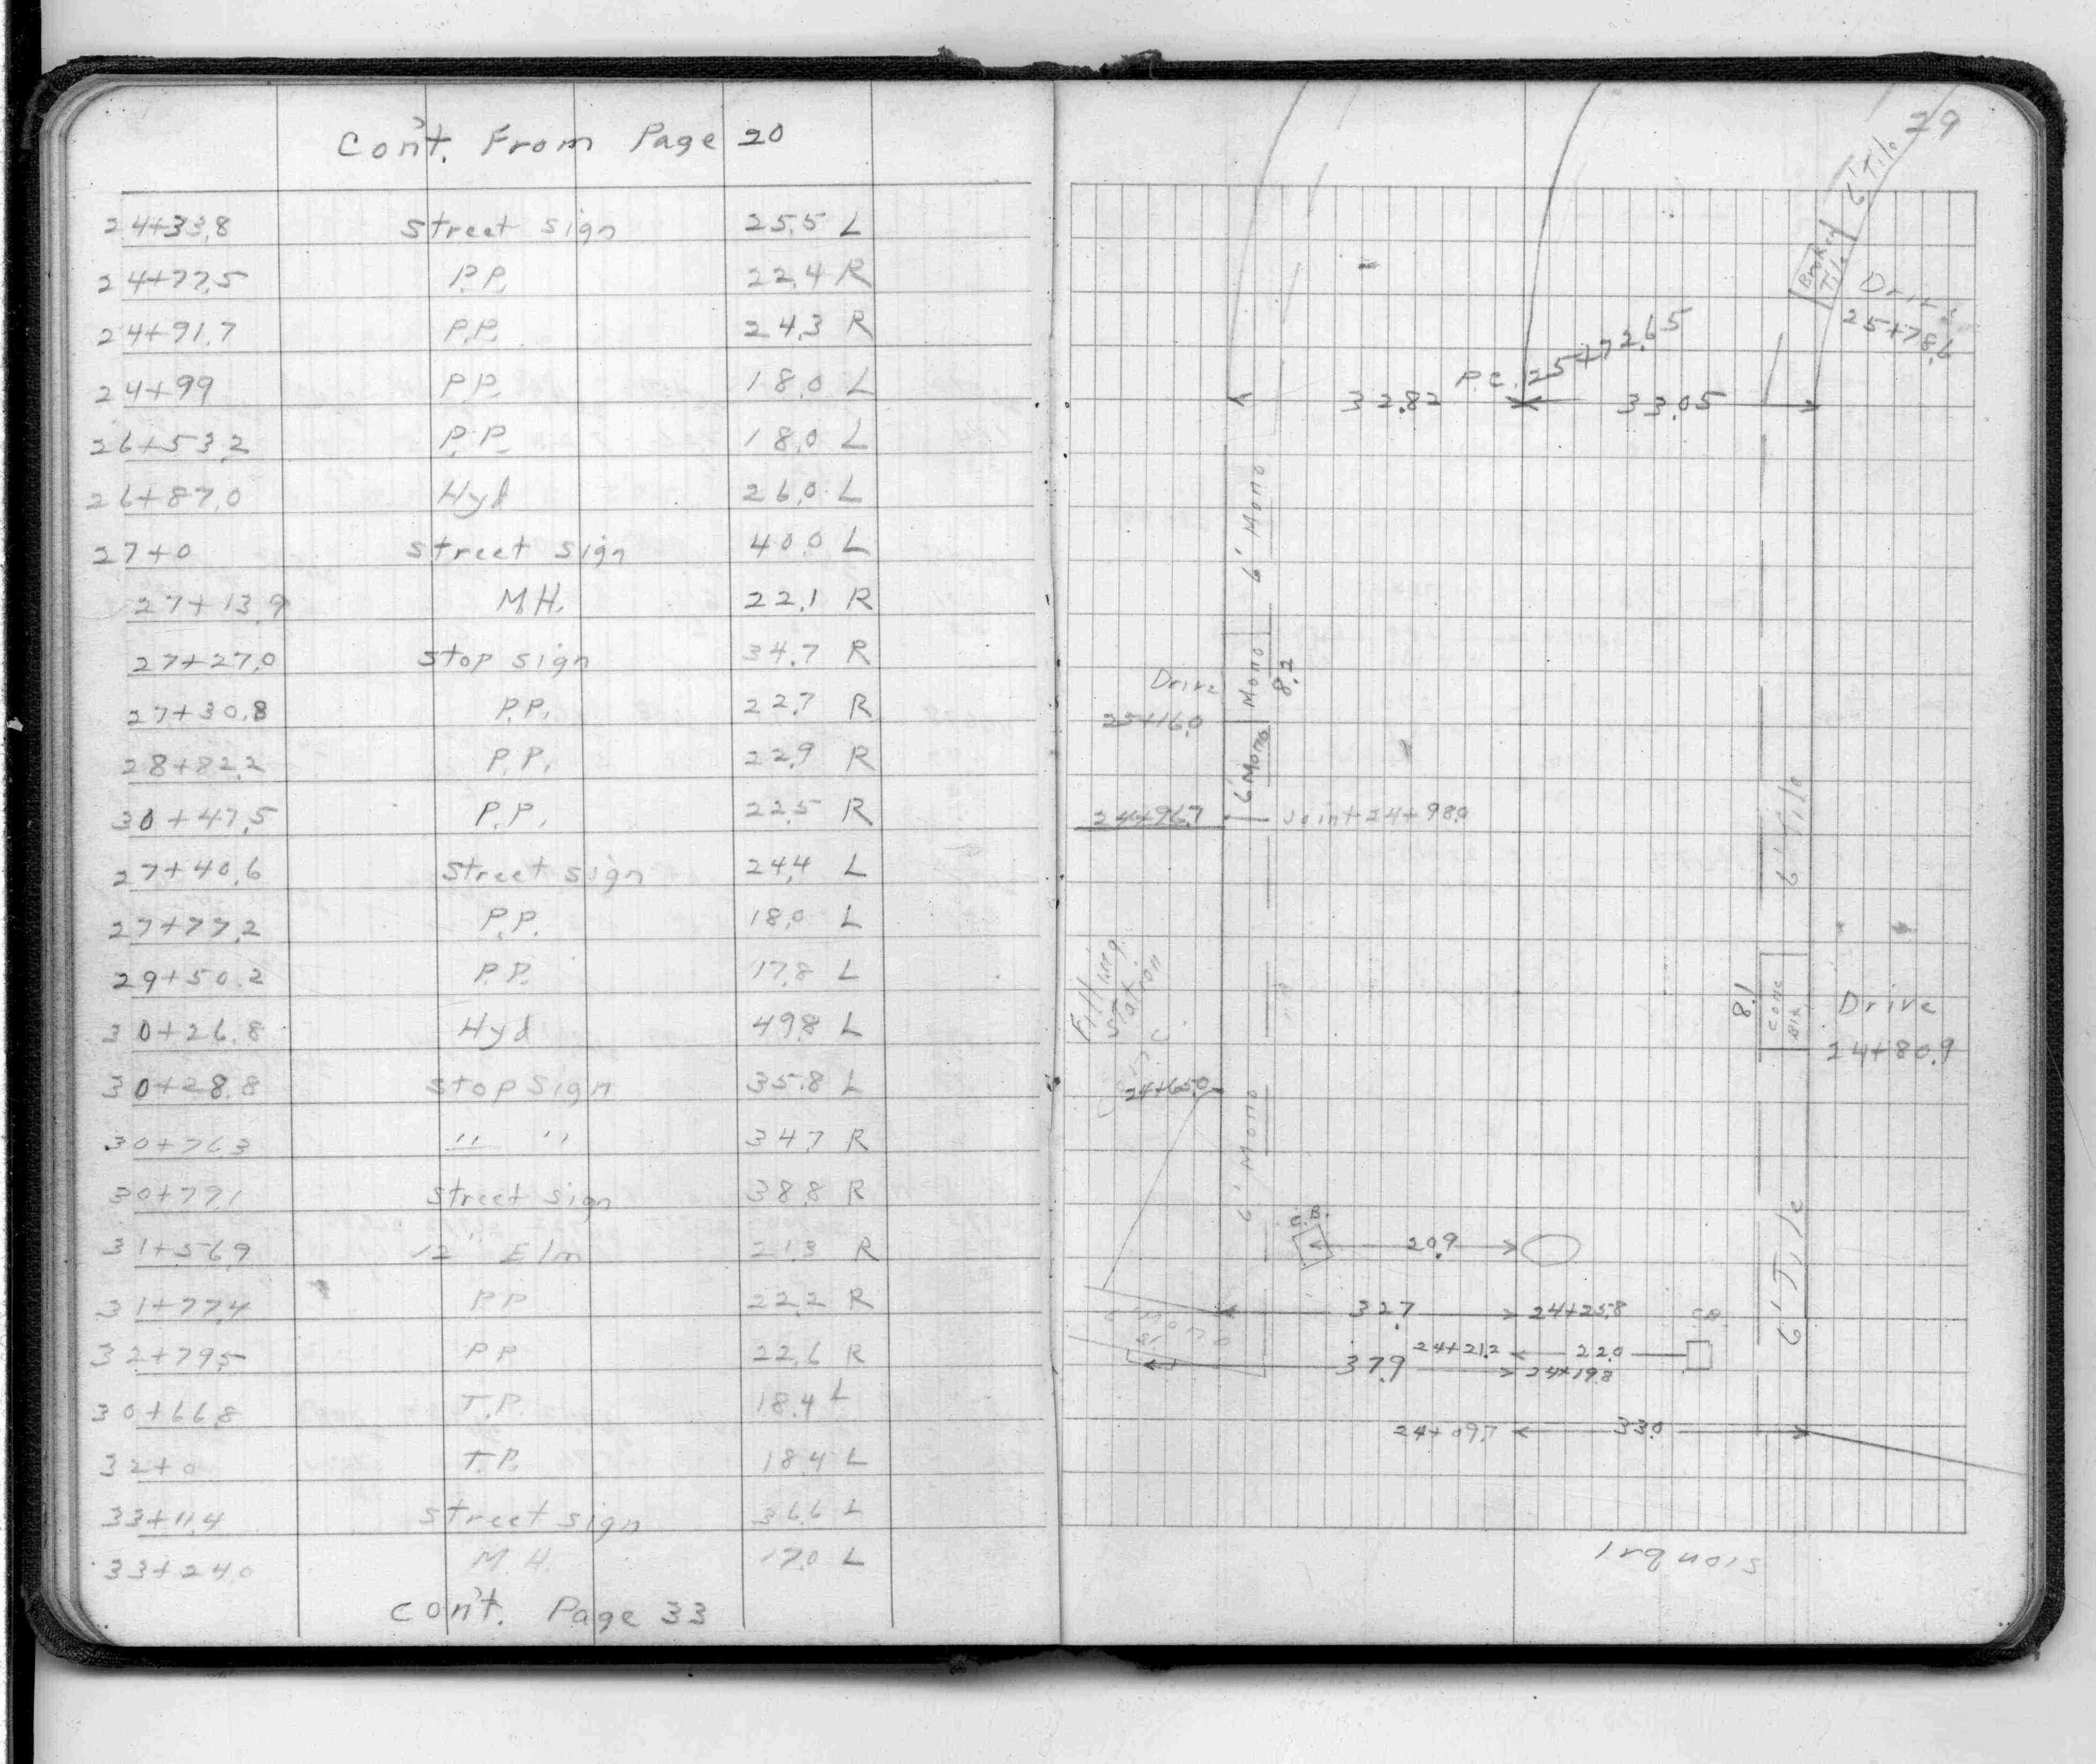 Con't. From Page 20
24+33.8 Street Sign 25.5 L
24+77.5 P.P. 22.4 R
24+91.7 P.P. 24.3 R
24+99 P.P. 18.0 L
26+53.2 P.P. 18.0 L
26+87.0 Hyd 26.0 L
27+0 Street Sign 40.0 L
27+13.9 M.H. 22.1 R
27+27.0 Stop Sign 34.7 R
27+30.8 P.P. 22.7 R
28+82.2 P.P. 22.9 R
30+47.5 P.P. 22.5 R
27+40.6 Street Sign 24.4 L
27+77.2 P.P. 18.0 L
29+50.2 P.P. 17.8 L
30+26.8 Hyd 49.8 L
30+28.8 Stop Sign 35.8 L
30+76.3 " " 34.7 R
30+79.1 Street Sign 38.8 R
31+56.9 12" Elm 21.3 R
31+77.4 P.P 22.2 R
32+79.5 P.P 22.6 R
30+66.8 T.P. 18.4 L
32+0 T.P. 18.4 L
33+11.4 Street Sign 36.6 L
33+24.0 M.H. 17.0 L
Con't. Page 33
29
6' Tile
Broken Tile
Drive
25+78.6
P.C. 25+72.65
32.82 33.05
6' Mono
Mono 8.2
Drive
25+16.0
6' Mono
24+96.7 Joint 24+98.0
6' Tile
Filling Station
8.1 Conc Drive
24+80.9
24+65.0
6' Mono
C.B.
20.9
6' Tile
32.7 24+25.8 C.B.
6' Mono
24+21.2 22.0
37.9 24+19.8
24+09.7 33.0
Irquois